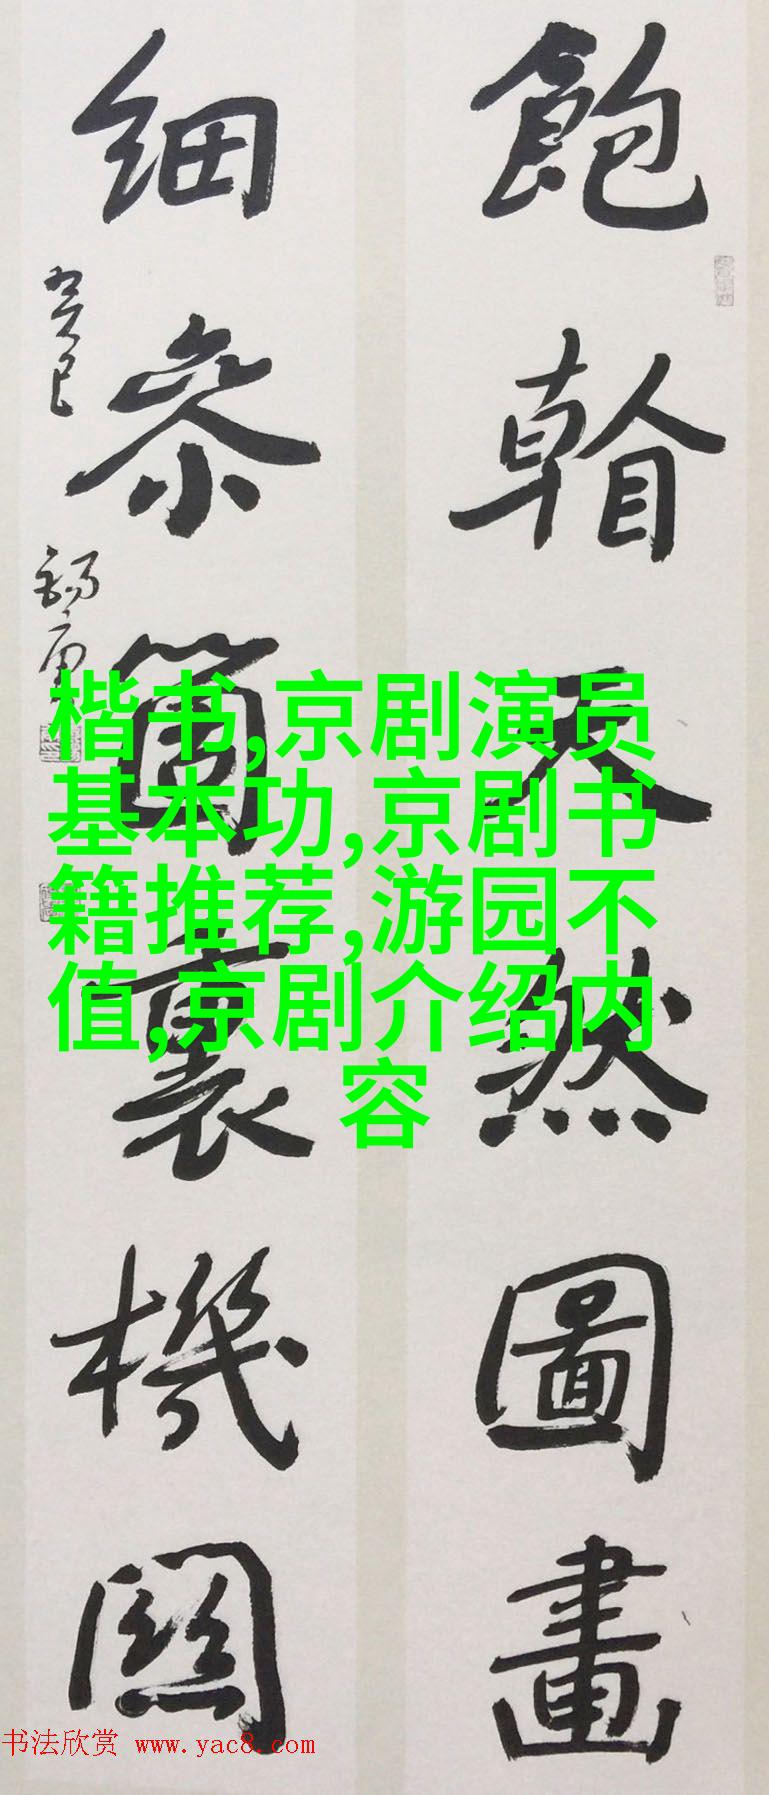 飽𩔰天然圖畫
細叅箇裏機關
癸巳
錫庚
楷书,京剧演员
基本功,京剧书
籍推荐,游园不
值,京剧介绍内
容
书法欣赏 www.yac8.com